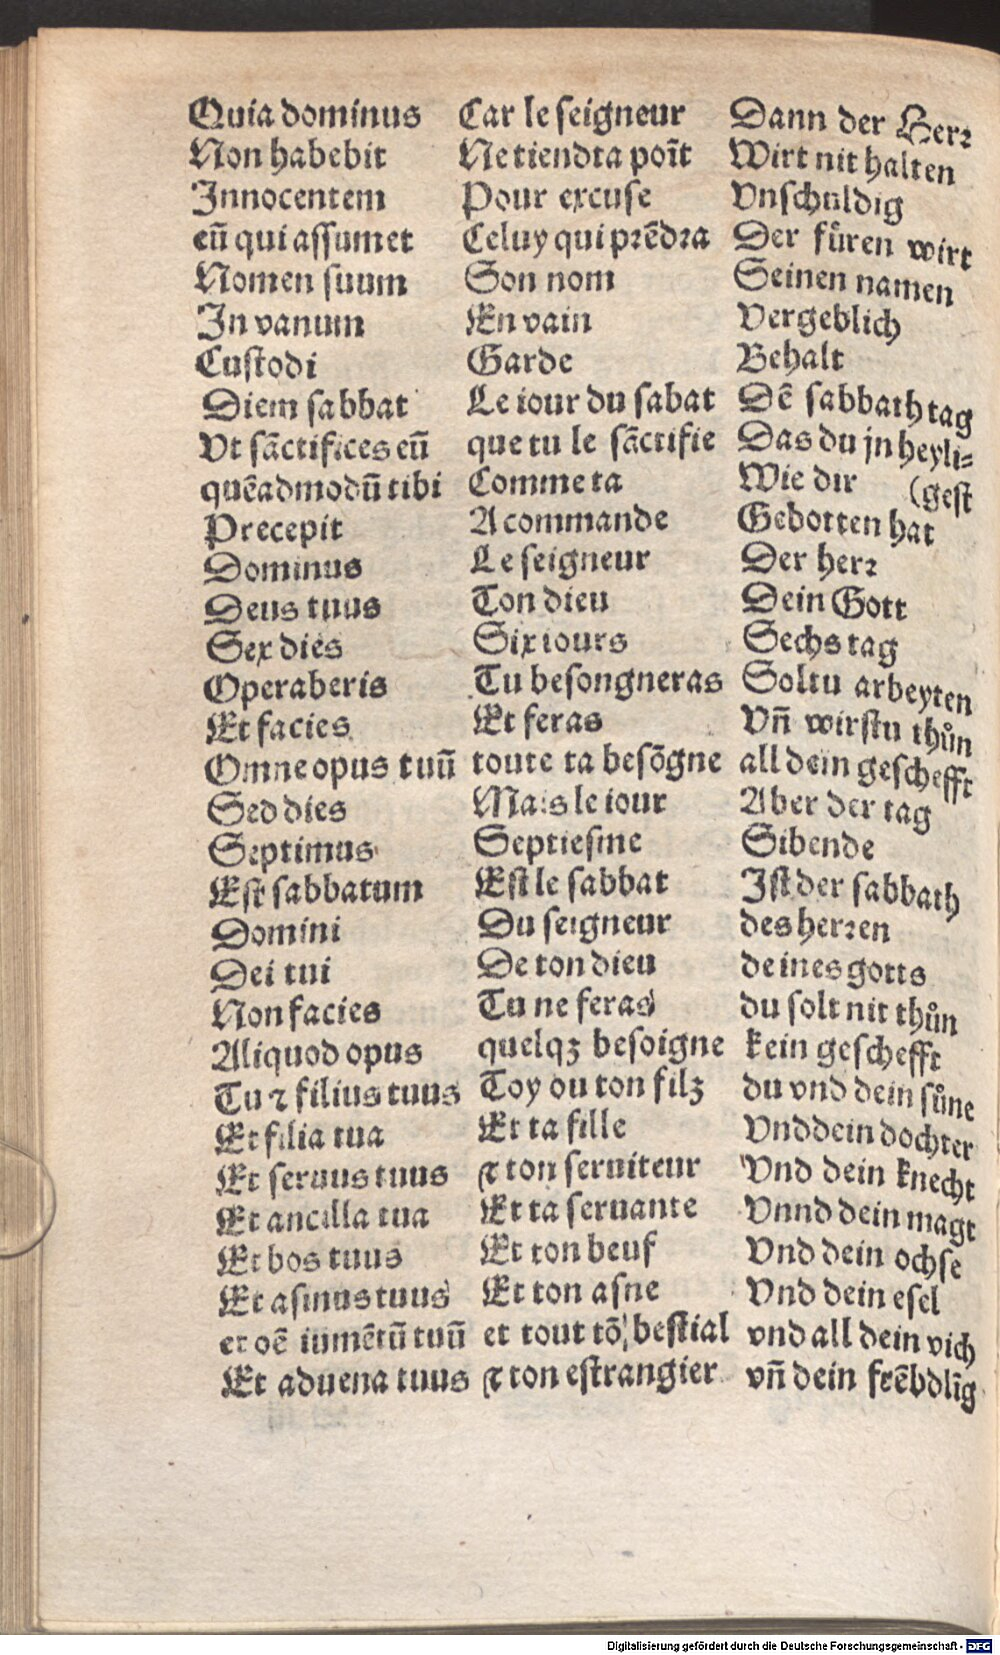 Quia dominus Car le seigneur Dann der Herꝛ
Non habebit Ne tiendra poīt Wirt nit halten
Innocentem Pour excuse Vnschuldig
eū qui assumet Celuy qui pꝛēdꝛa Der fůren wirt
Nomen suum Son nom Seinen namen
In vanum En vain Vergeblich
Custodi Garde Behalt
Diem sabbat Le iour du sabat Dē sabbath tag
Vt sāctifices eū que tu le sāctifie Das du jn heyli⸗
quēadmodū tibi Comme ta Wie dir (gest
Precepit A commande Gebotten hat
Dominus Le seigneur Der herꝛ
Deus tuus Ton dieu Dein Gott
Sex dies Six iours Sechs tag
Operaberis Tu besongneras Soltu arbeyten
Et facies Et feras Vn̄ wirstu thůn
Omne opus tuū toute ta besōgne all dein geschefft
Sed dies Mais le iour Aber der tag
Septimus Septiesme Sibende
Est sabbatum Est le sabbat Ist der sabbath
Domini Du seigneur des herꝛen
Dei tui De ton dieu deines gotts
Non facies Tu ne feras du solt nit thůn
Aliquod opus quelqꝫ besoigne kein geschefft
Tu ⁊ filius tuus Toy ou ton filz du vnd dein sůne
Et filia tua Et ta fille Vnd dein dochter
Et seruus tuus ⁊ ton seruiteur Vnd dein knecht
Et ancilla tua Et ta seruante Vnnd dein magt
Et bos tuus Et ton beuf Vnd dein ochse
Et asinus tuus Et ton asne Vnd dein esel
et oē iumētū tuū et tout tō bestial vnd all dein vich
Et aduena tuus ⁊ ton estrangier vn̄ dein frēbdlīg
Digitalisierung gefördert durch die Deutsche Forschungsgemeinschaft - DFG